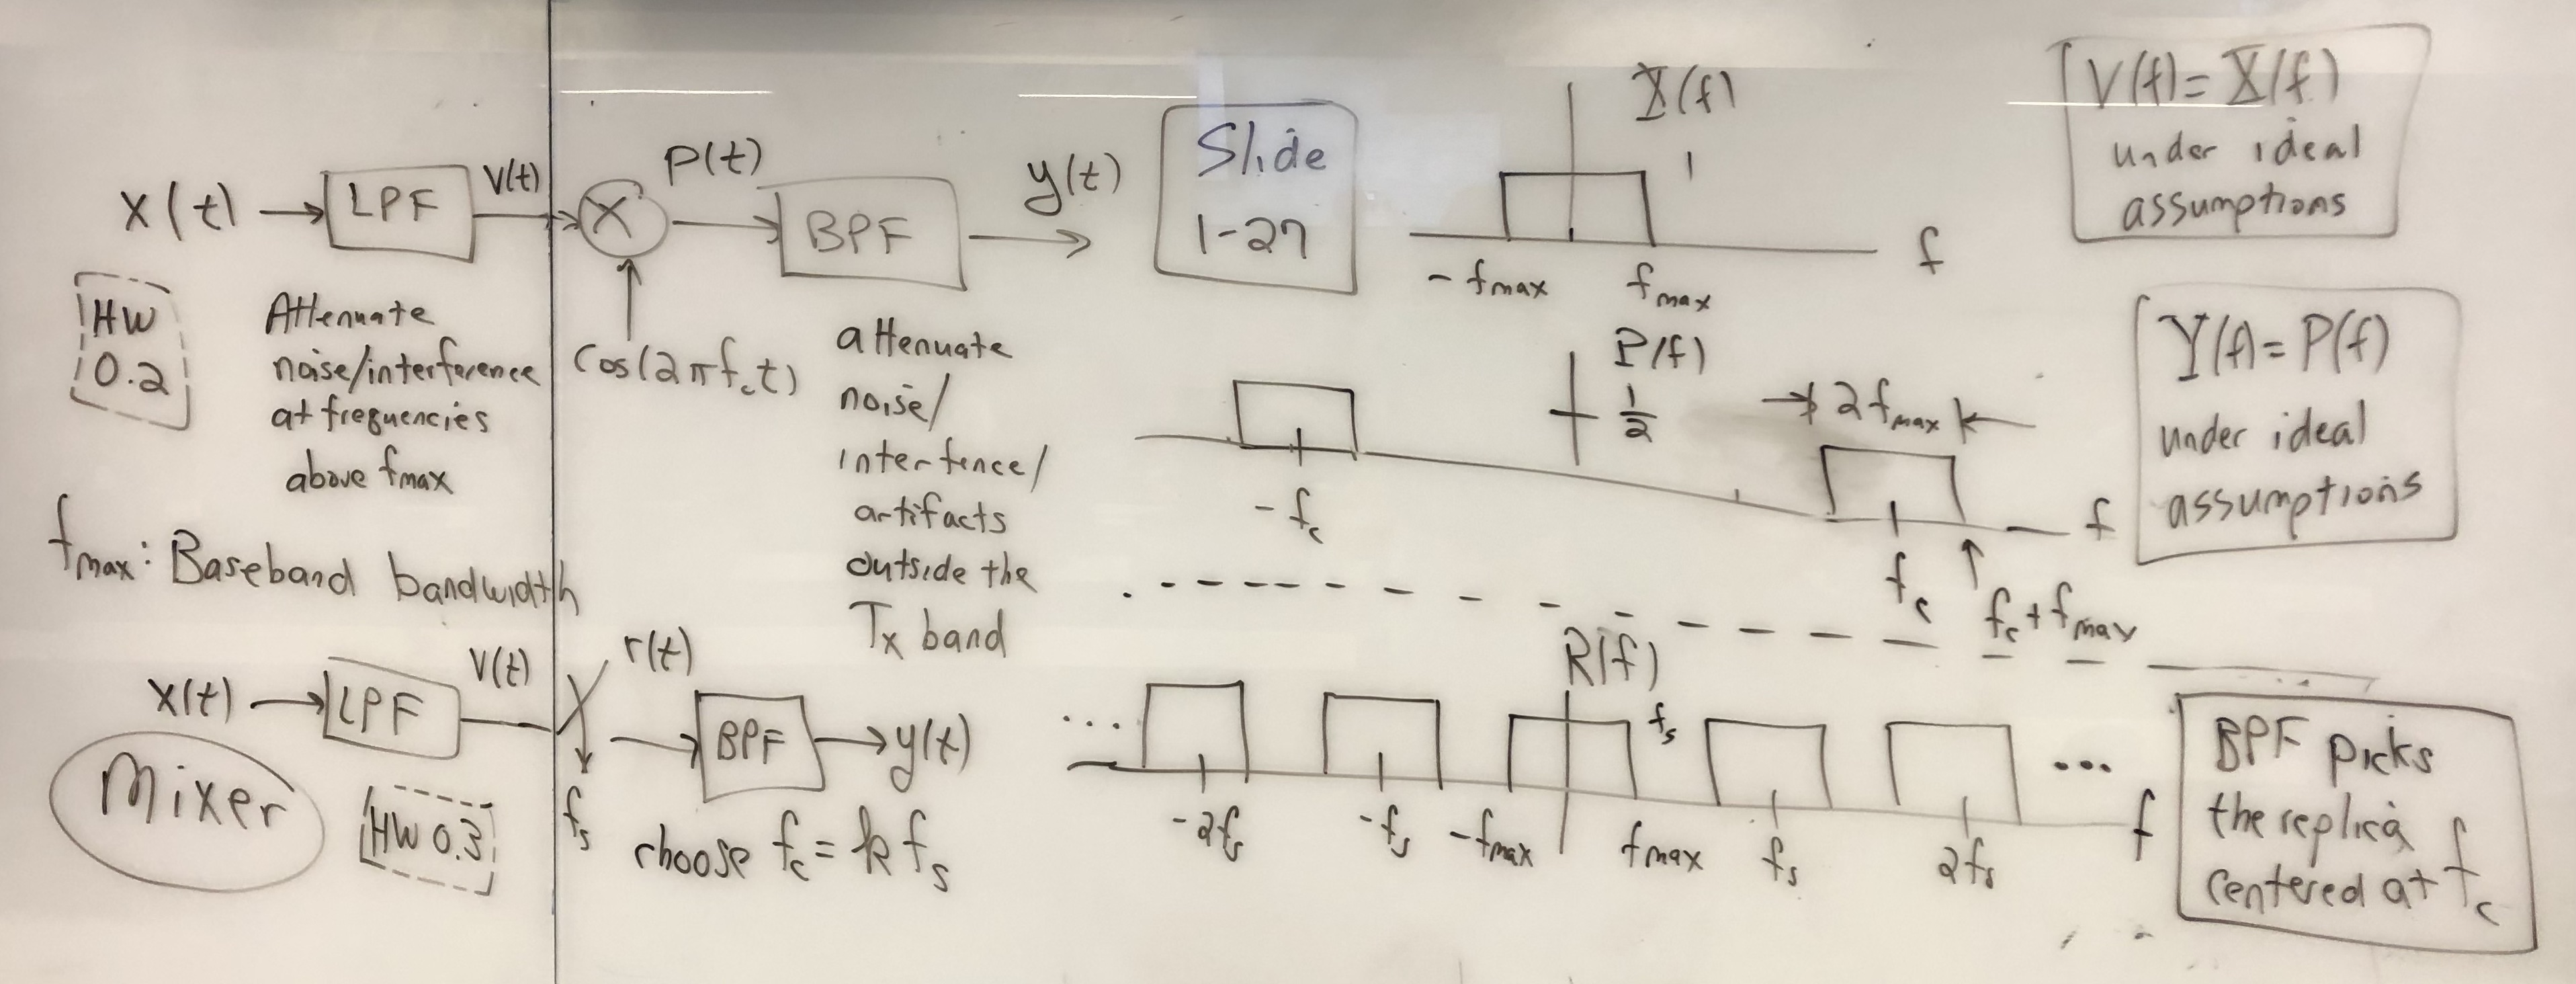 x(t)
LPF
v(t)
X
p(t)
BPF
y(t)
cos(2πf_c t)
HW
0.2
Attenuate
noise/interference
at frequencies
above fmax
attenuate
noise/
interfence/
artifacts
outside the
Tx band
fmax: Baseband bandwidth
Slide
1-27
X(f)
1
-fmax
fmax
f
V(f)=X(f)
under ideal
assumptions
P(f)
1/2
2fmax
-f_c
f_c
f_c+fmax
f
Y(f)=P(f)
under ideal
assumptions
x(t)
LPF
v(t)
r(t)
f_s
BPF
y(t)
Mixer
HW 0.3
choose f_c = k f_s
R(f)
f_s
...
-2f_s
-f_s
-fmax
fmax
f_s
2f_s
...
f
BPF picks
the replica
centered at f_c